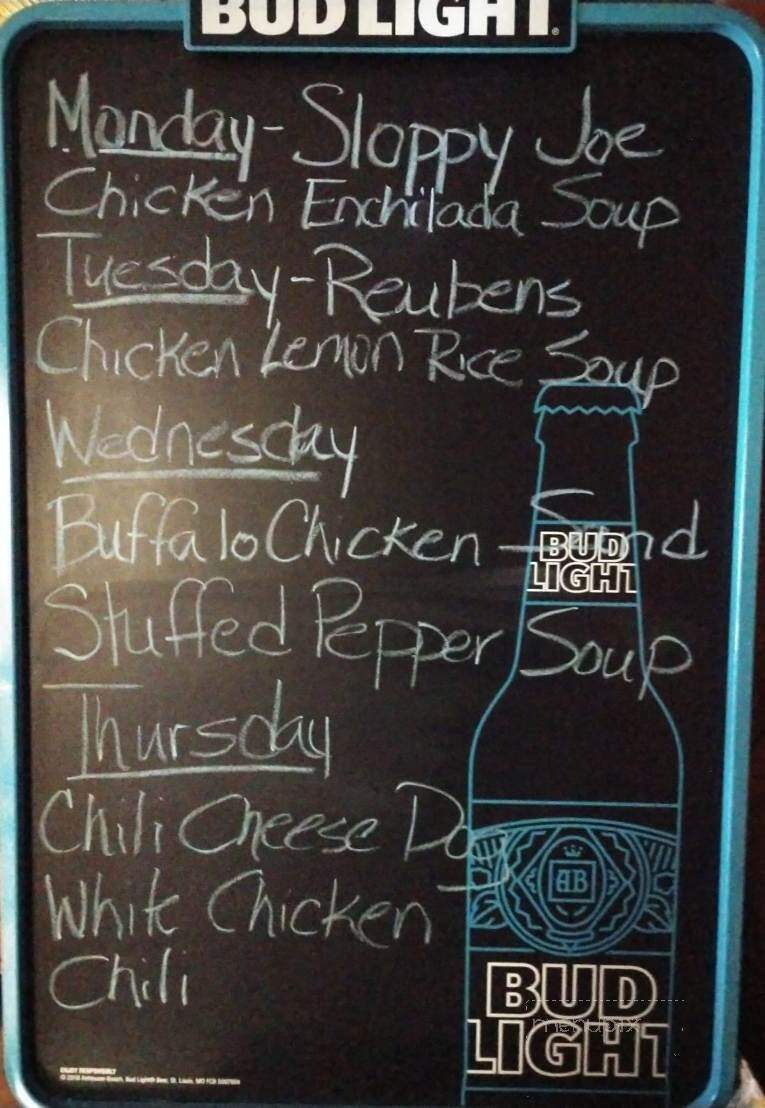 BUD LIGHT.
Monday - Sloppy Joe
Chicken Enchilada Soup
Tuesday - Reubens
Chicken Lemon Rice Soup
Wednesday
Buffalo Chicken Sand
Stuffed Pepper Soup
Thursday
Chili Cheese Dog
White Chicken
Chili
BUD
LIGHT
AB
BUD
LIGHT
menupix
ENJOY RESPONSIBLY